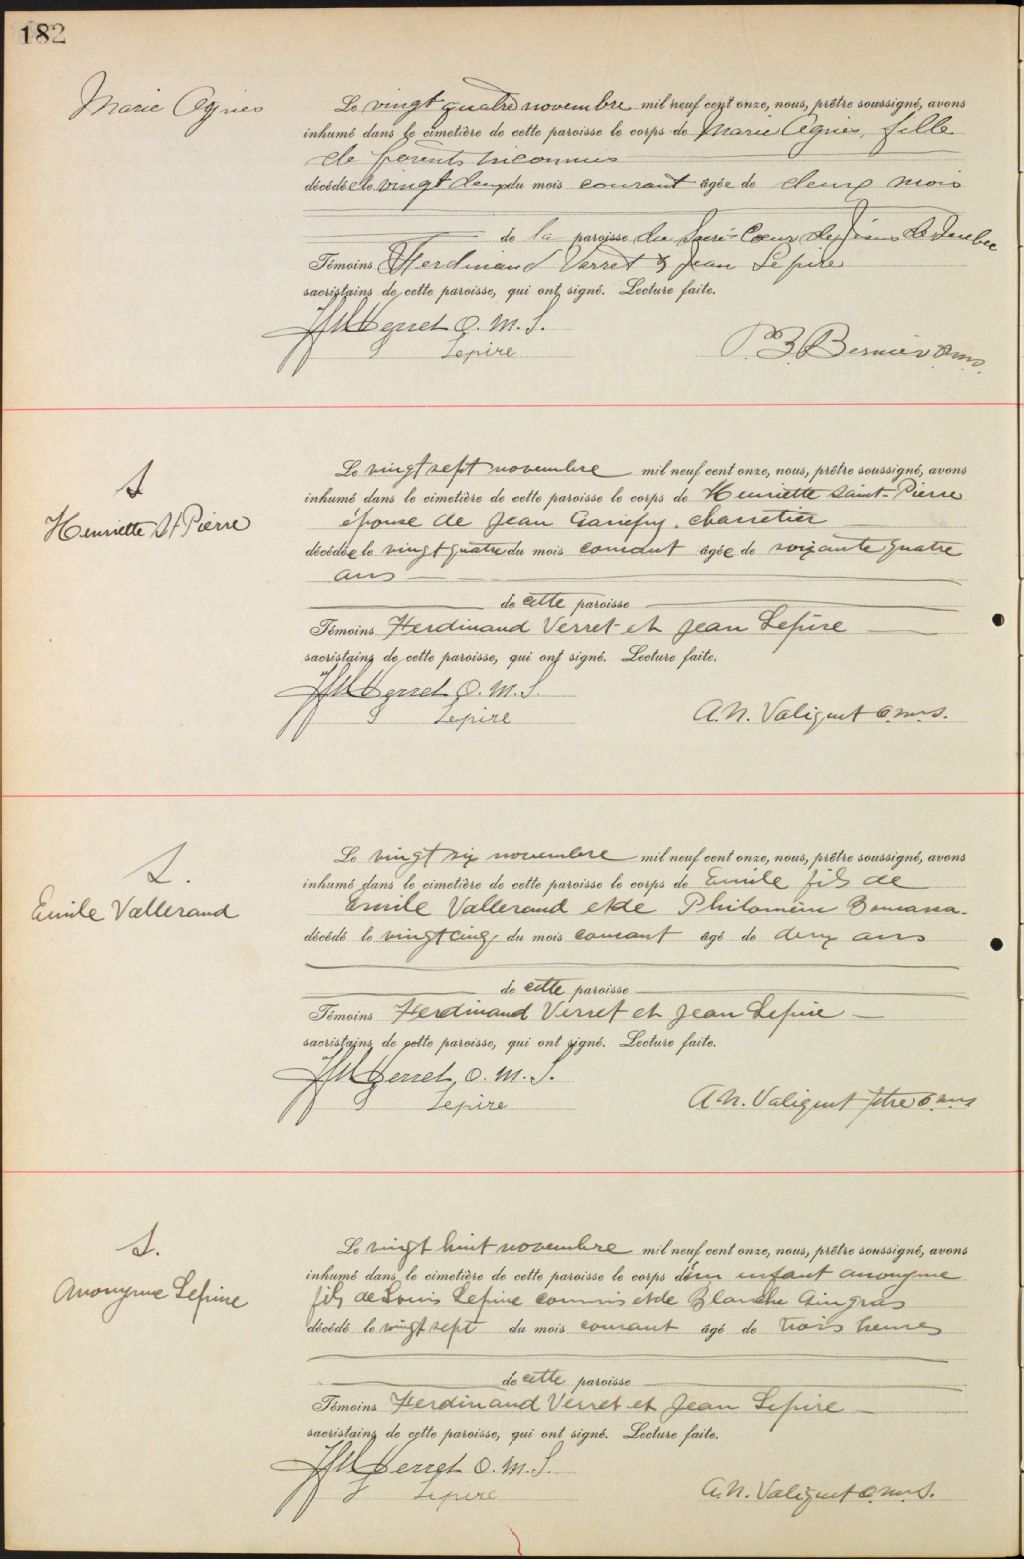 182
Marie Agnès
Le vingt quatre novembre mil neuf cent onze, nous, prêtre soussigné, avons
inhumé dans le cimetière de cette paroisse le corps de Marie Agnès, fille
de parents inconnus
décédée le vingt deux du mois courant âgée de deux mois
de la paroisse du Sacré-Cœur de Jésus de Québec
Témoins Ferdinand Verret & Jean Lepire
sacristains de cette paroisse, qui ont signé. Lecture faite.
Verret O. M. S.
Lepire
P. B. Bernier o.m.s.
S
Henriette St Pierre
Le vingt sept novembre mil neuf cent onze, nous, prêtre soussigné, avons
inhumé dans le cimetière de cette paroisse le corps de Henriette Saint-Pierre
épouse de Jean Gariépy, charretier
décédée le vingt quatre du mois courant âgée de soixante quatre
ans
de cette paroisse
Témoins Ferdinand Verret et Jean Lepire
sacristains de cette paroisse, qui ont signé. Lecture faite.
Verret O. M. S.
Lepire
A. N. Valiquet o.m.s.
S.
Emile Vallerand
Le vingt six novembre mil neuf cent onze, nous, prêtre soussigné, avons
inhumé dans le cimetière de cette paroisse le corps de Emile fils de
Emile Vallerand et de Philomène
décédé le vingt cinq du mois courant âgé de deux ans
de cette paroisse
Témoins Ferdinand Verret et Jean Lepire
sacristains de cette paroisse, qui ont signé. Lecture faite.
Verret O. M. S.
Lepire
A. N. Valiquet ptre o.m.s.
S.
Anonyme Lepine
Le vingt huit novembre mil neuf cent onze, nous, prêtre soussigné, avons
inhumé dans le cimetière de cette paroisse le corps d'un enfant anonyme
fils de Louis Lepine commis et de Blanche Gingras
décédé le vingt sept du mois courant âgé de trois heures
de cette paroisse
Témoins Ferdinand Verret et Jean Lepire
sacristains de cette paroisse, qui ont signé. Lecture faite.
Verret O. M. S.
Lepire
A. N. Valiquet o.m.s.